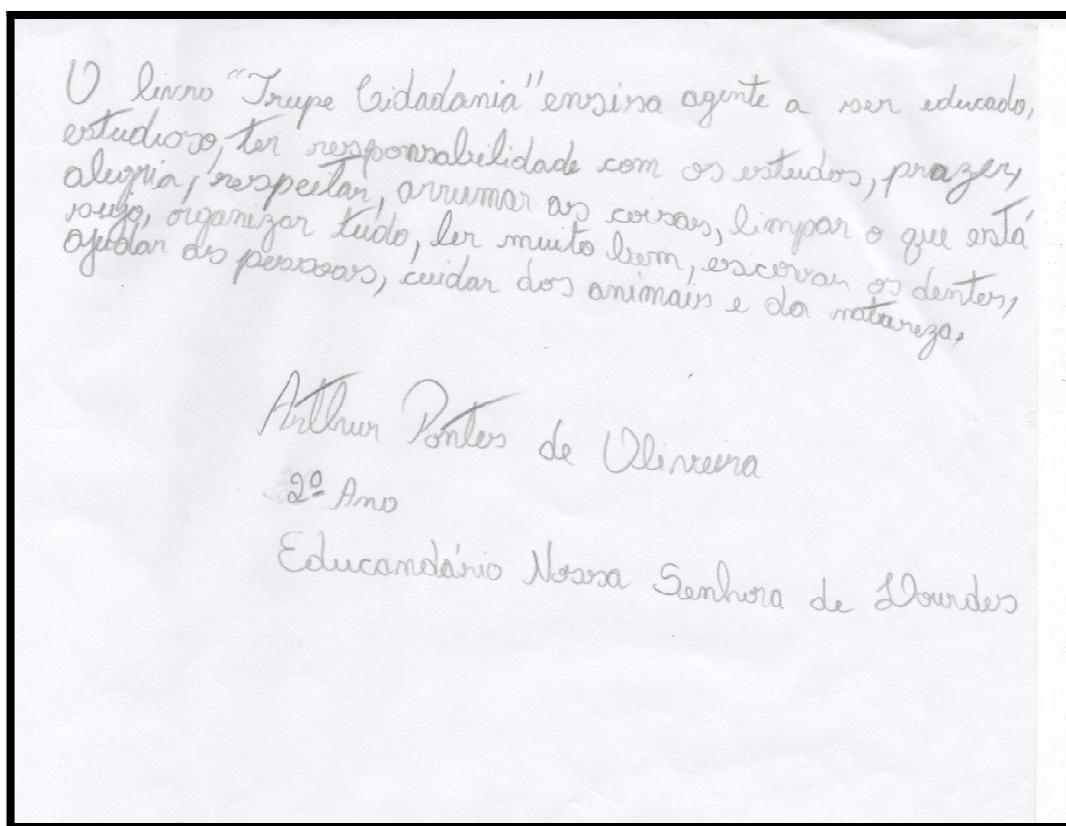 O livro "Trupe Cidadania" ensina agente a ser educado,
estudioso, ter responsabilidade com os estudos, prazer,
alegria, respeitar, arrumar as coisas, limpar o que está
sujo, organizar tudo, ler muito bem, escovar os dentes,
ajudar as pessoas, cuidar dos animais e da natureza.
Arthur Pontes de Oliveira
2º Ano
Educandário Nossa Senhora de Lourdes